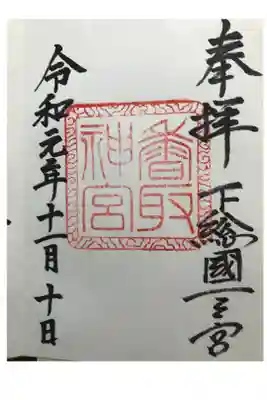 奉拝 下総國一之宮
香取
神宮
令和元年十一月十日